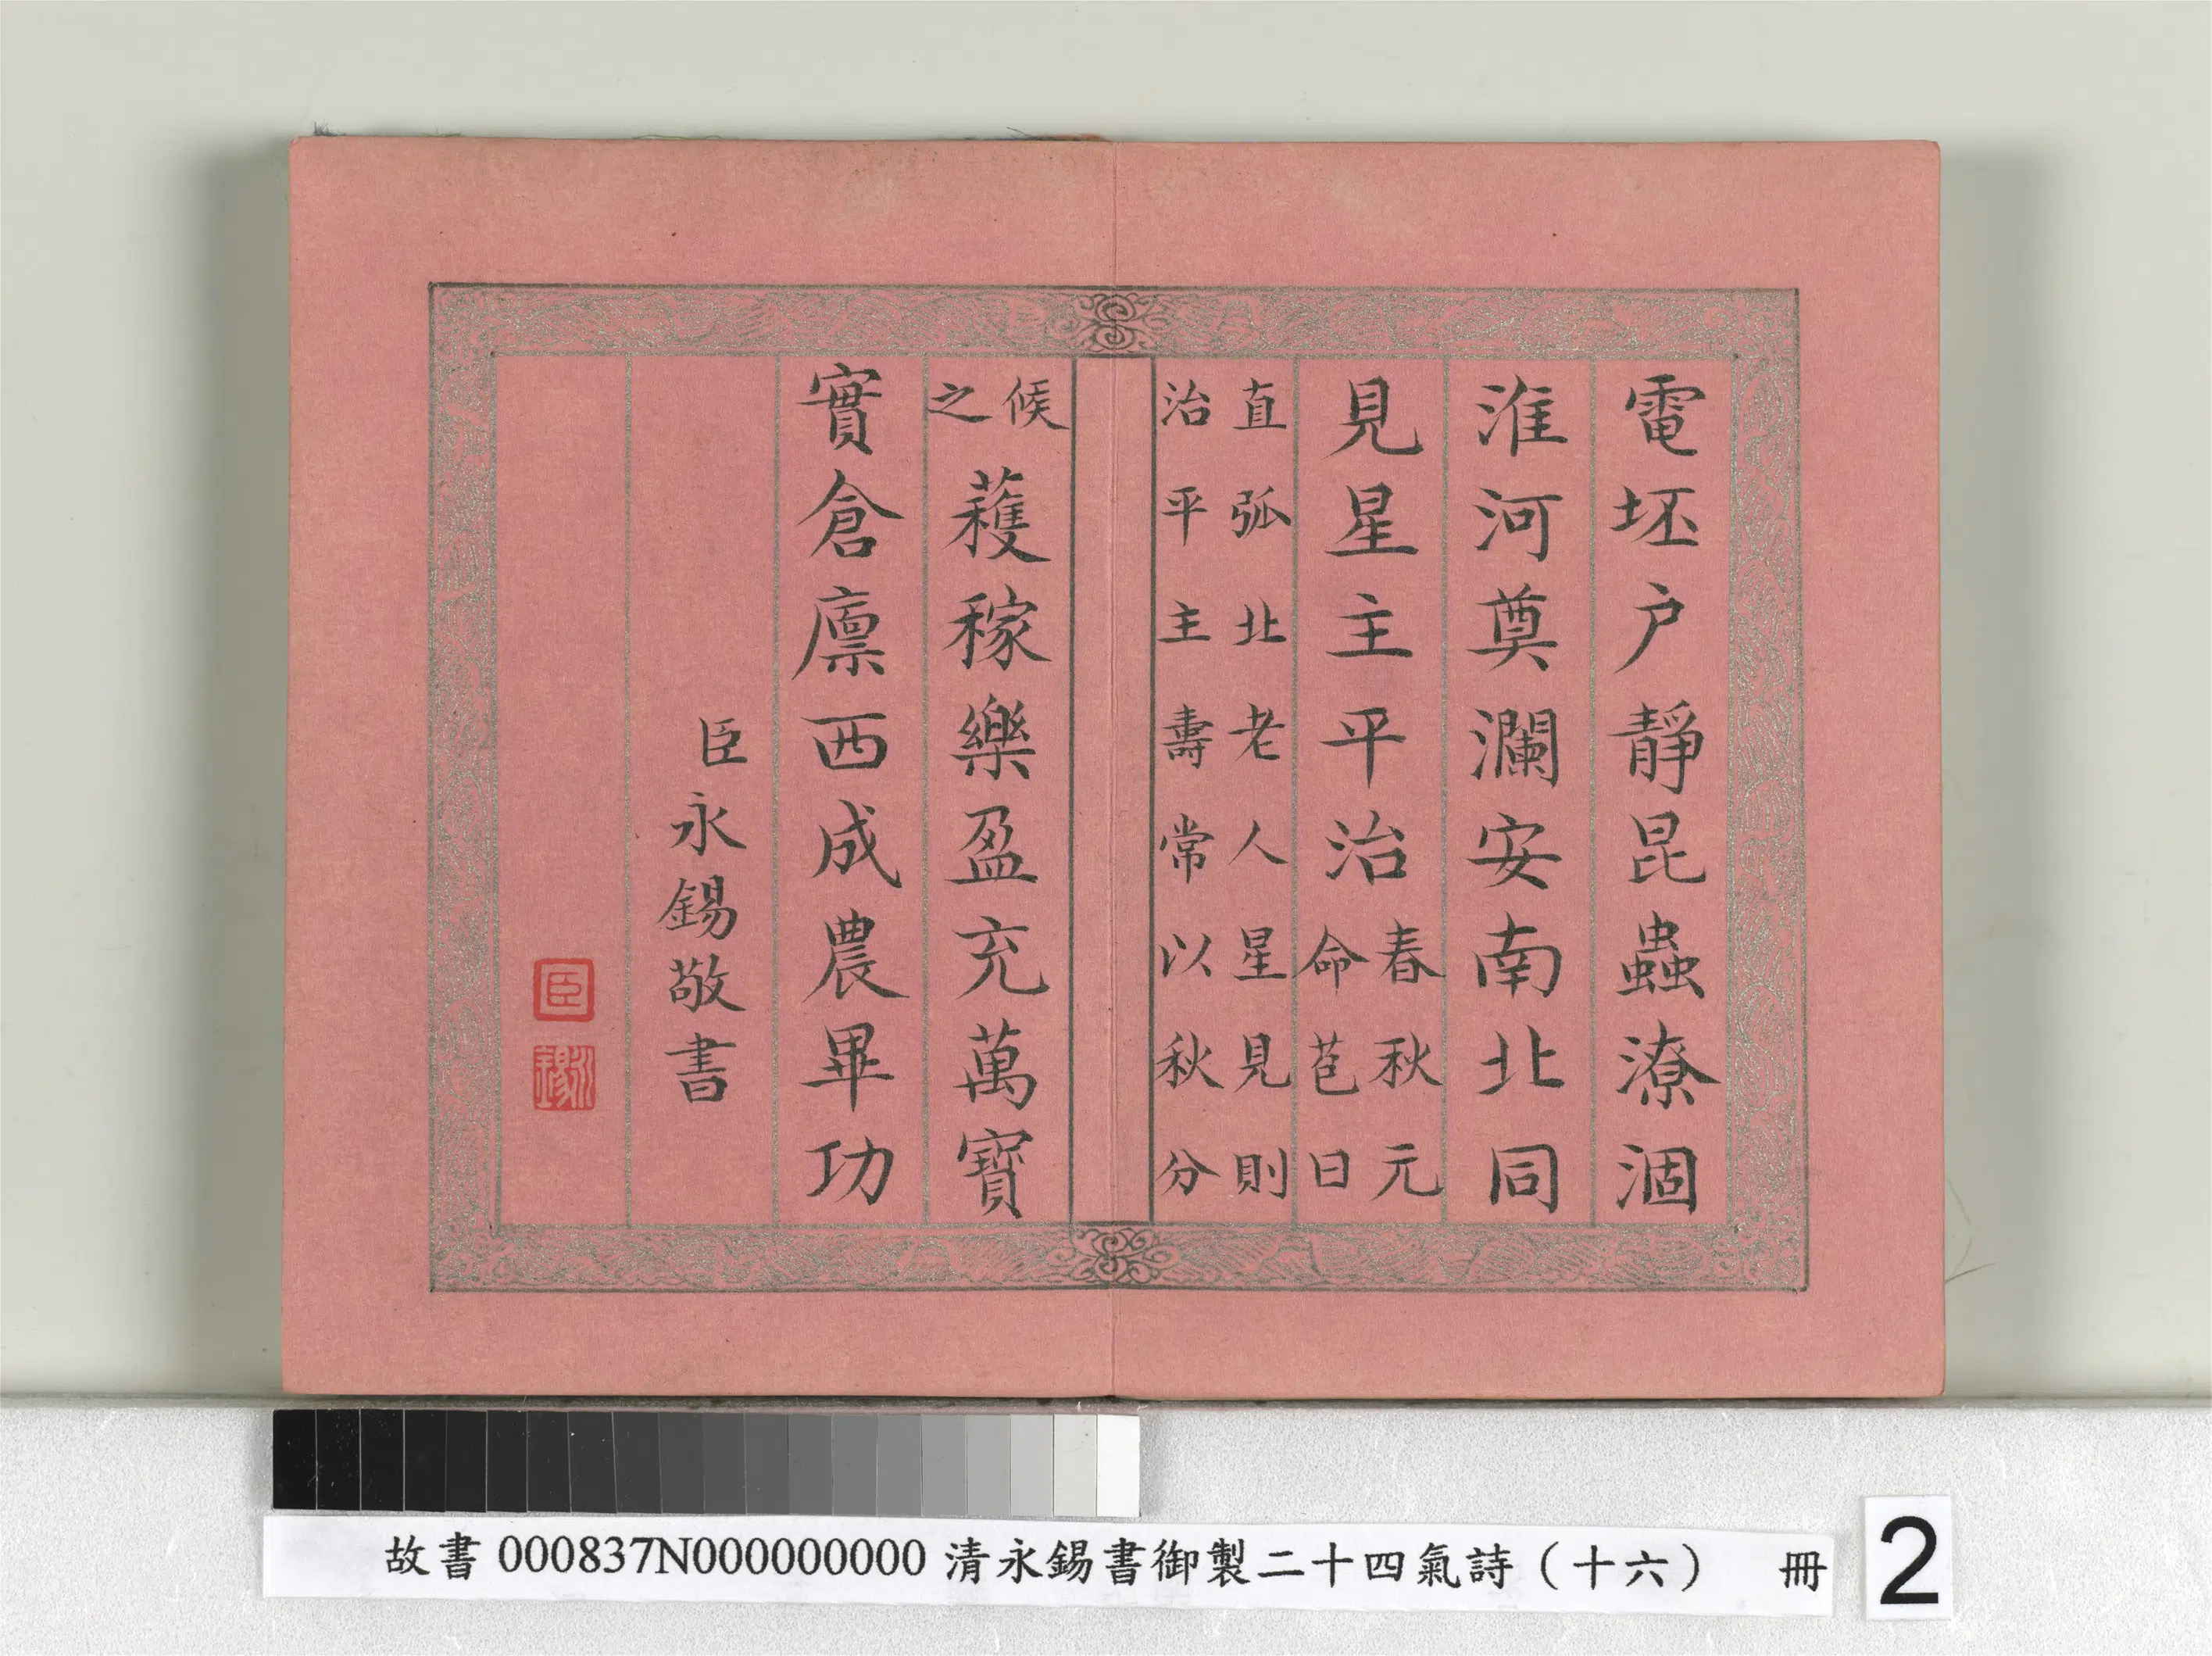 電坯户靜昆蟲潦涸
淮河奠瀾安南北同
見星主平治春秋元
命苞曰
直弧北老人星見則
治平主壽常以秋分
候
之
蓷稼樂盈充萬寶
實倉廪西成農畢功
臣永錫敬書
臣
永錫
故書000837N000000000清永錫書御製二十四氣詩（十六） 冊
2